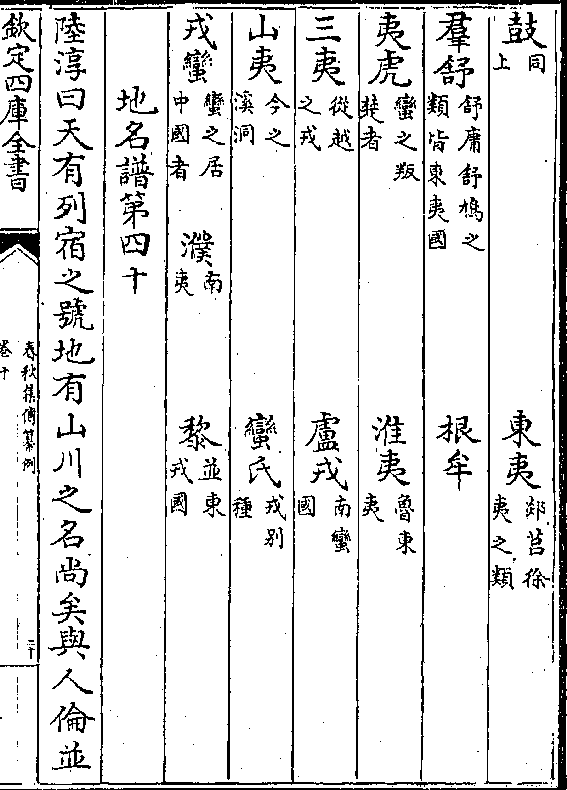 鼓同上 東夷郯莒徐夷之類
羣舒舒庸舒鳩之類皆東夷國 根牟
夷虎蠻之叛楚者 淮夷魯東夷
三夷從越之戎 盧戎南蠻國
山夷今之溪洞 蠻氏戎别種
戎蠻蠻之居中國者 濮南夷 黎並東戎國
地名譜第四十
陸淳曰天有列宿之號地有山川之名尚矣與人倫並
欽定四庫全書
春秋集傳纂例
卷十